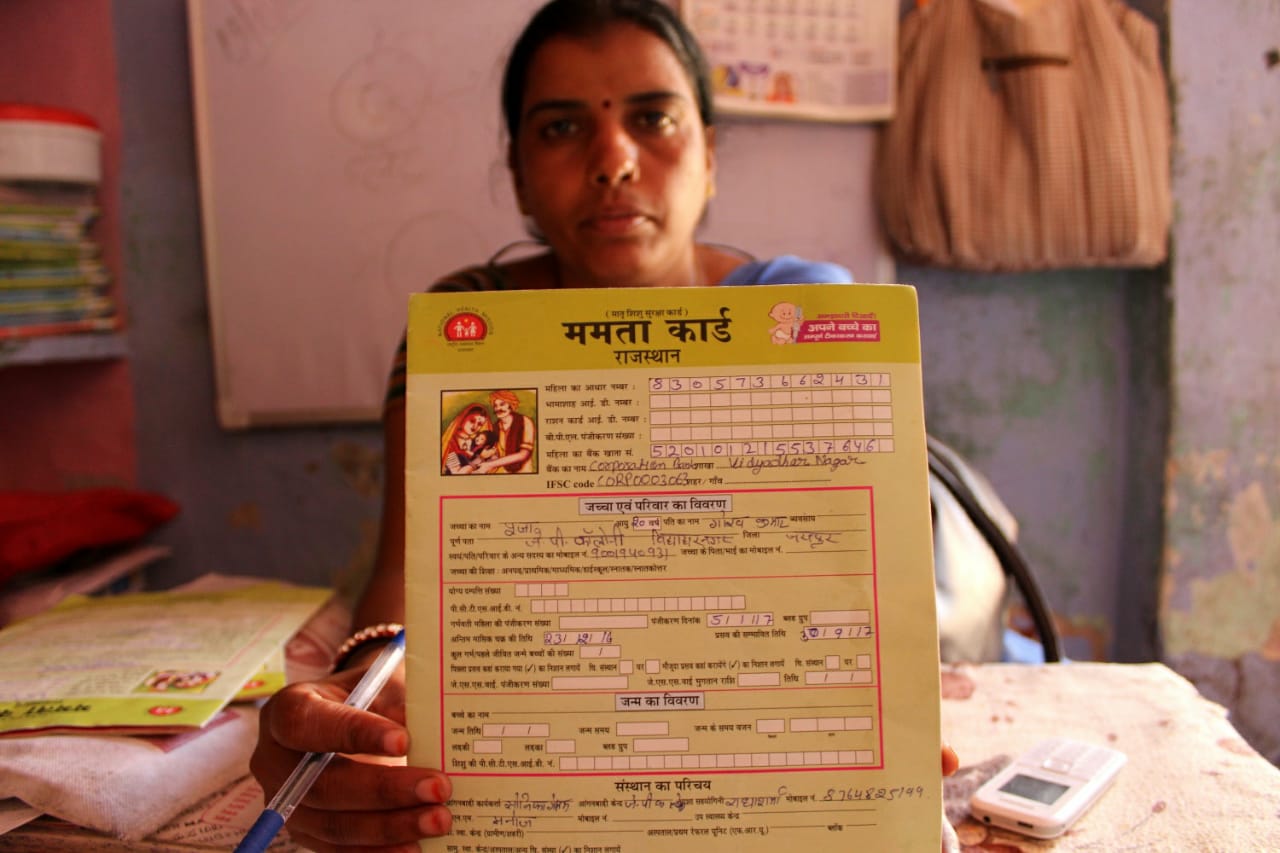 ( मातृ शिशु सुरक्षा कार्ड )
ममता कार्ड
राजस्थान
अपने बच्चे का
सम्पूर्ण टीकाकरण करवाएं
महिला का आधार नम्बर : 830573662431
भामाशाह आई. डी. नम्बर :
राशन कार्ड आई. डी. नम्बर :
बी.पी.एल. पंजीकरण संख्या :
महिला का बैंक खाता सं. 520101215537646
बैंक का नाम Corporation Bank शाखा Vidyadhar Nagar
IFSC code CORP0003063 शहर / गाँव
जच्चा एवं परिवार का विवरण
जच्चा का नाम पूजा आयु 20 वर्ष पति का नाम कुमार व्यवसाय
पूर्ण पता जे. पी. कॉलोनी विद्याधरनगर जिला जयपुर
स्वयं/पति/परिवार के अन्य सदस्य का मोबाइल नं. जच्चा के पिता/भाई का मोबाइल नं.
जच्चा की शिक्षा : अनपढ़/प्राथमिक/माध्यमिक/हाईस्कूल/स्नातक/स्नातकोत्तर
योग्य दम्पत्ति संख्या
पी.सी.टी.एस.आई.डी. नं.
गर्भवती महिला की पंजीकरण संख्या पंजीकरण दिनांक 5/1/17 ब्लड ग्रुप
अन्तिम मासिक चक्र की तिथि प्रसव की सम्भावित तिथि
कुल गर्भ/पहले जीवित जन्मे बच्चों की संख्या 1
पिछला प्रसव कहां कराया गया (✓) का निशान लगायें चि. संस्थान पर मौजूदा प्रसव कहां करायेंगे (✓) का निशान लगायें चि. संस्थान घर
जे.एस.एस.वाई. पंजीकरण संख्या जे.एस.एस.वाई भुगतान राशि तिथि
जन्म का विवरण
बच्चे का नाम
जन्म तिथि जन्म समय जन्म के समय वजन
लड़की लड़का ब्लड ग्रुप
शिशु की पी.सी.टी.एस.आई.डी. नं.
संस्थान का परिचय
आंगनबाड़ी कार्यकर्ता आंगनबाड़ी केन्द्र आशा सहयोगिनी मोबाइल नं. 8764825199
मोबाइल नं. उप स्वास्थ्य केन्द्र
स्वा. केन्द्र (ग्रामीण/शहरी) अस्पताल/प्रथम रेफरल यूनिट (एफ.आर.यू.) ब्लॉक